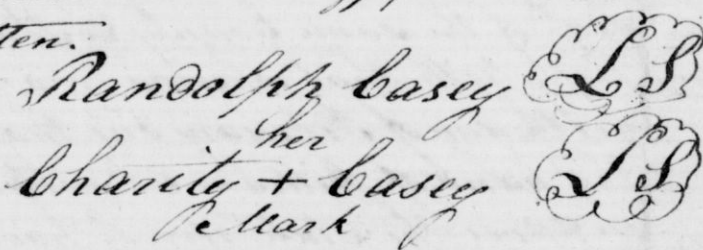 ten.
Randolph Casey L S
her
Charity + Casey L S
Mark